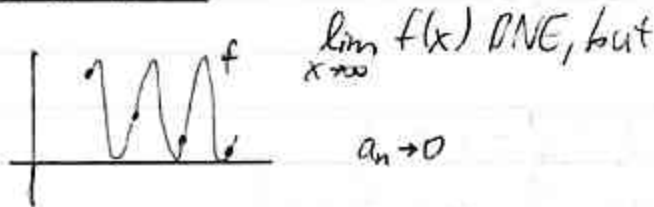 f
lim f(x) DNE, but
x→∞
aₙ→0